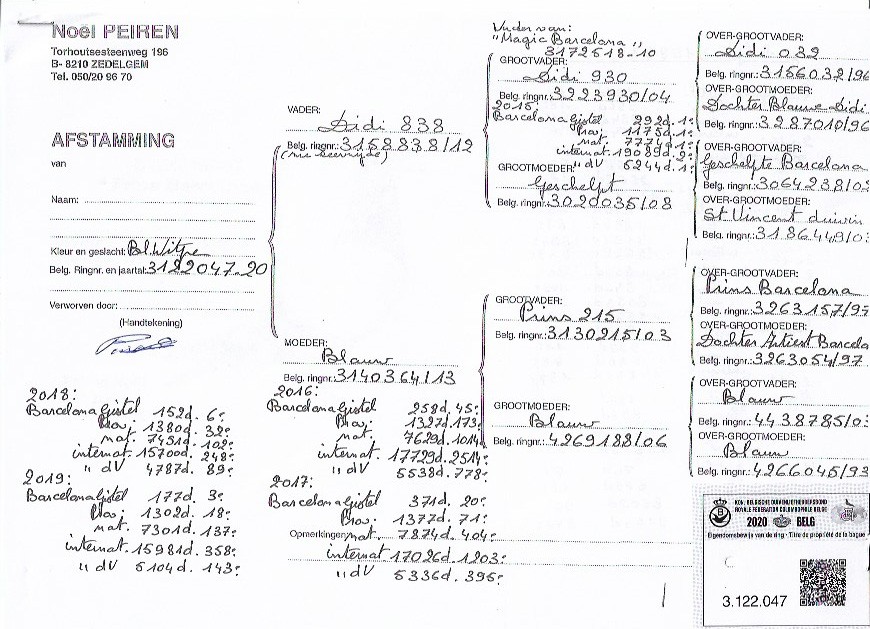 Noël PEIREN
Torhoutsesteenweg 196
B- 8210 ZEDELGEM
Tel. 050/20 96 70
AFSTAMMING
van
Naam:
Kleur en geslacht: Bl. Witpen
Belg. Ringnr. en jaartal: 3122047-20
Verworven door:
(Handtekening)
VADER:
Didi 838
Belg. ringnr.: 3158838/12
MOEDER:
Blauw
Belg. ringnr.: 3140364/13
Vader van:
"Magic Barcelona"
3172518-10
GROOTVADER:
Didi 930
Belg. ringnr.: 3223930/04
2015:
Barcelona Gistel 292d. 1e
Prov. 1175d. 1e
nat. 7774d. 1e
internat. 19089d. 2e
" dV 6244d. 1e
GROOTMOEDER:
Geschelpt
Belg. ringnr.: 3020035/08
GROOTVADER:
Prins 215
Belg. ringnr.: 3130215/03
GROOTMOEDER:
Blauw
Belg. ringnr.: 4269188/06
OVER-GROOTVADER:
Didi 032
Belg. ringnr.: 3156032/96
OVER-GROOTMOEDER:
Dochter Blauwe Didi
Belg. ringnr.: 3287010/96
OVER-GROOTVADER:
Geschelpte Barcelona
Belg. ringnr.: 3064238/0
OVER-GROOTMOEDER:
St Vincent duivin
Belg. ringnr.: 3186449/0
OVER-GROOTVADER:
Prins Barcelona
Belg. ringnr.: 3263157/97
OVER-GROOTMOEDER:
Dochter Artiest Barcelo
Belg. ringnr.: 3263054/97
OVER-GROOTVADER:
Blauw
Belg. ringnr.: 4438785/0
OVER-GROOTMOEDER:
Blauw
Belg. ringnr.: 4266045/93
2018:
Barcelona Gistel 152d. 6e
Prov. 1380d. 32e
nat. 7451d. 102e
internat. 15700d. 248e
" dV 4787d. 89e
2019:
Barcelona Gistel 177d. 3e
Prov. 1302d. 18e
nat. 7301d. 137e
internat. 15981d. 358e
" dV 5104d. 143e
2016:
Barcelona Gistel 258d. 45e
Prov. 1327d. 173e
nat. 7629d. 1014e
internat. 17729d. 2514e
" dV 5538d. 778e
2017:
Barcelona Gistel 371d. 20e
Prov. 1377d. 71e
Opmerkingen: nat. 7874d. 404e
internat 17026d. 1203e
" dV 5336d. 395e
KON. BELGISCHE DUIVENLIEFHEBBERSBOND
ROYALE FEDERATION COLOMBOPHILE BELGE
2020 BELG
Eigendomsbewijs van de ring - Titre de propriété de la bague
3.122.047